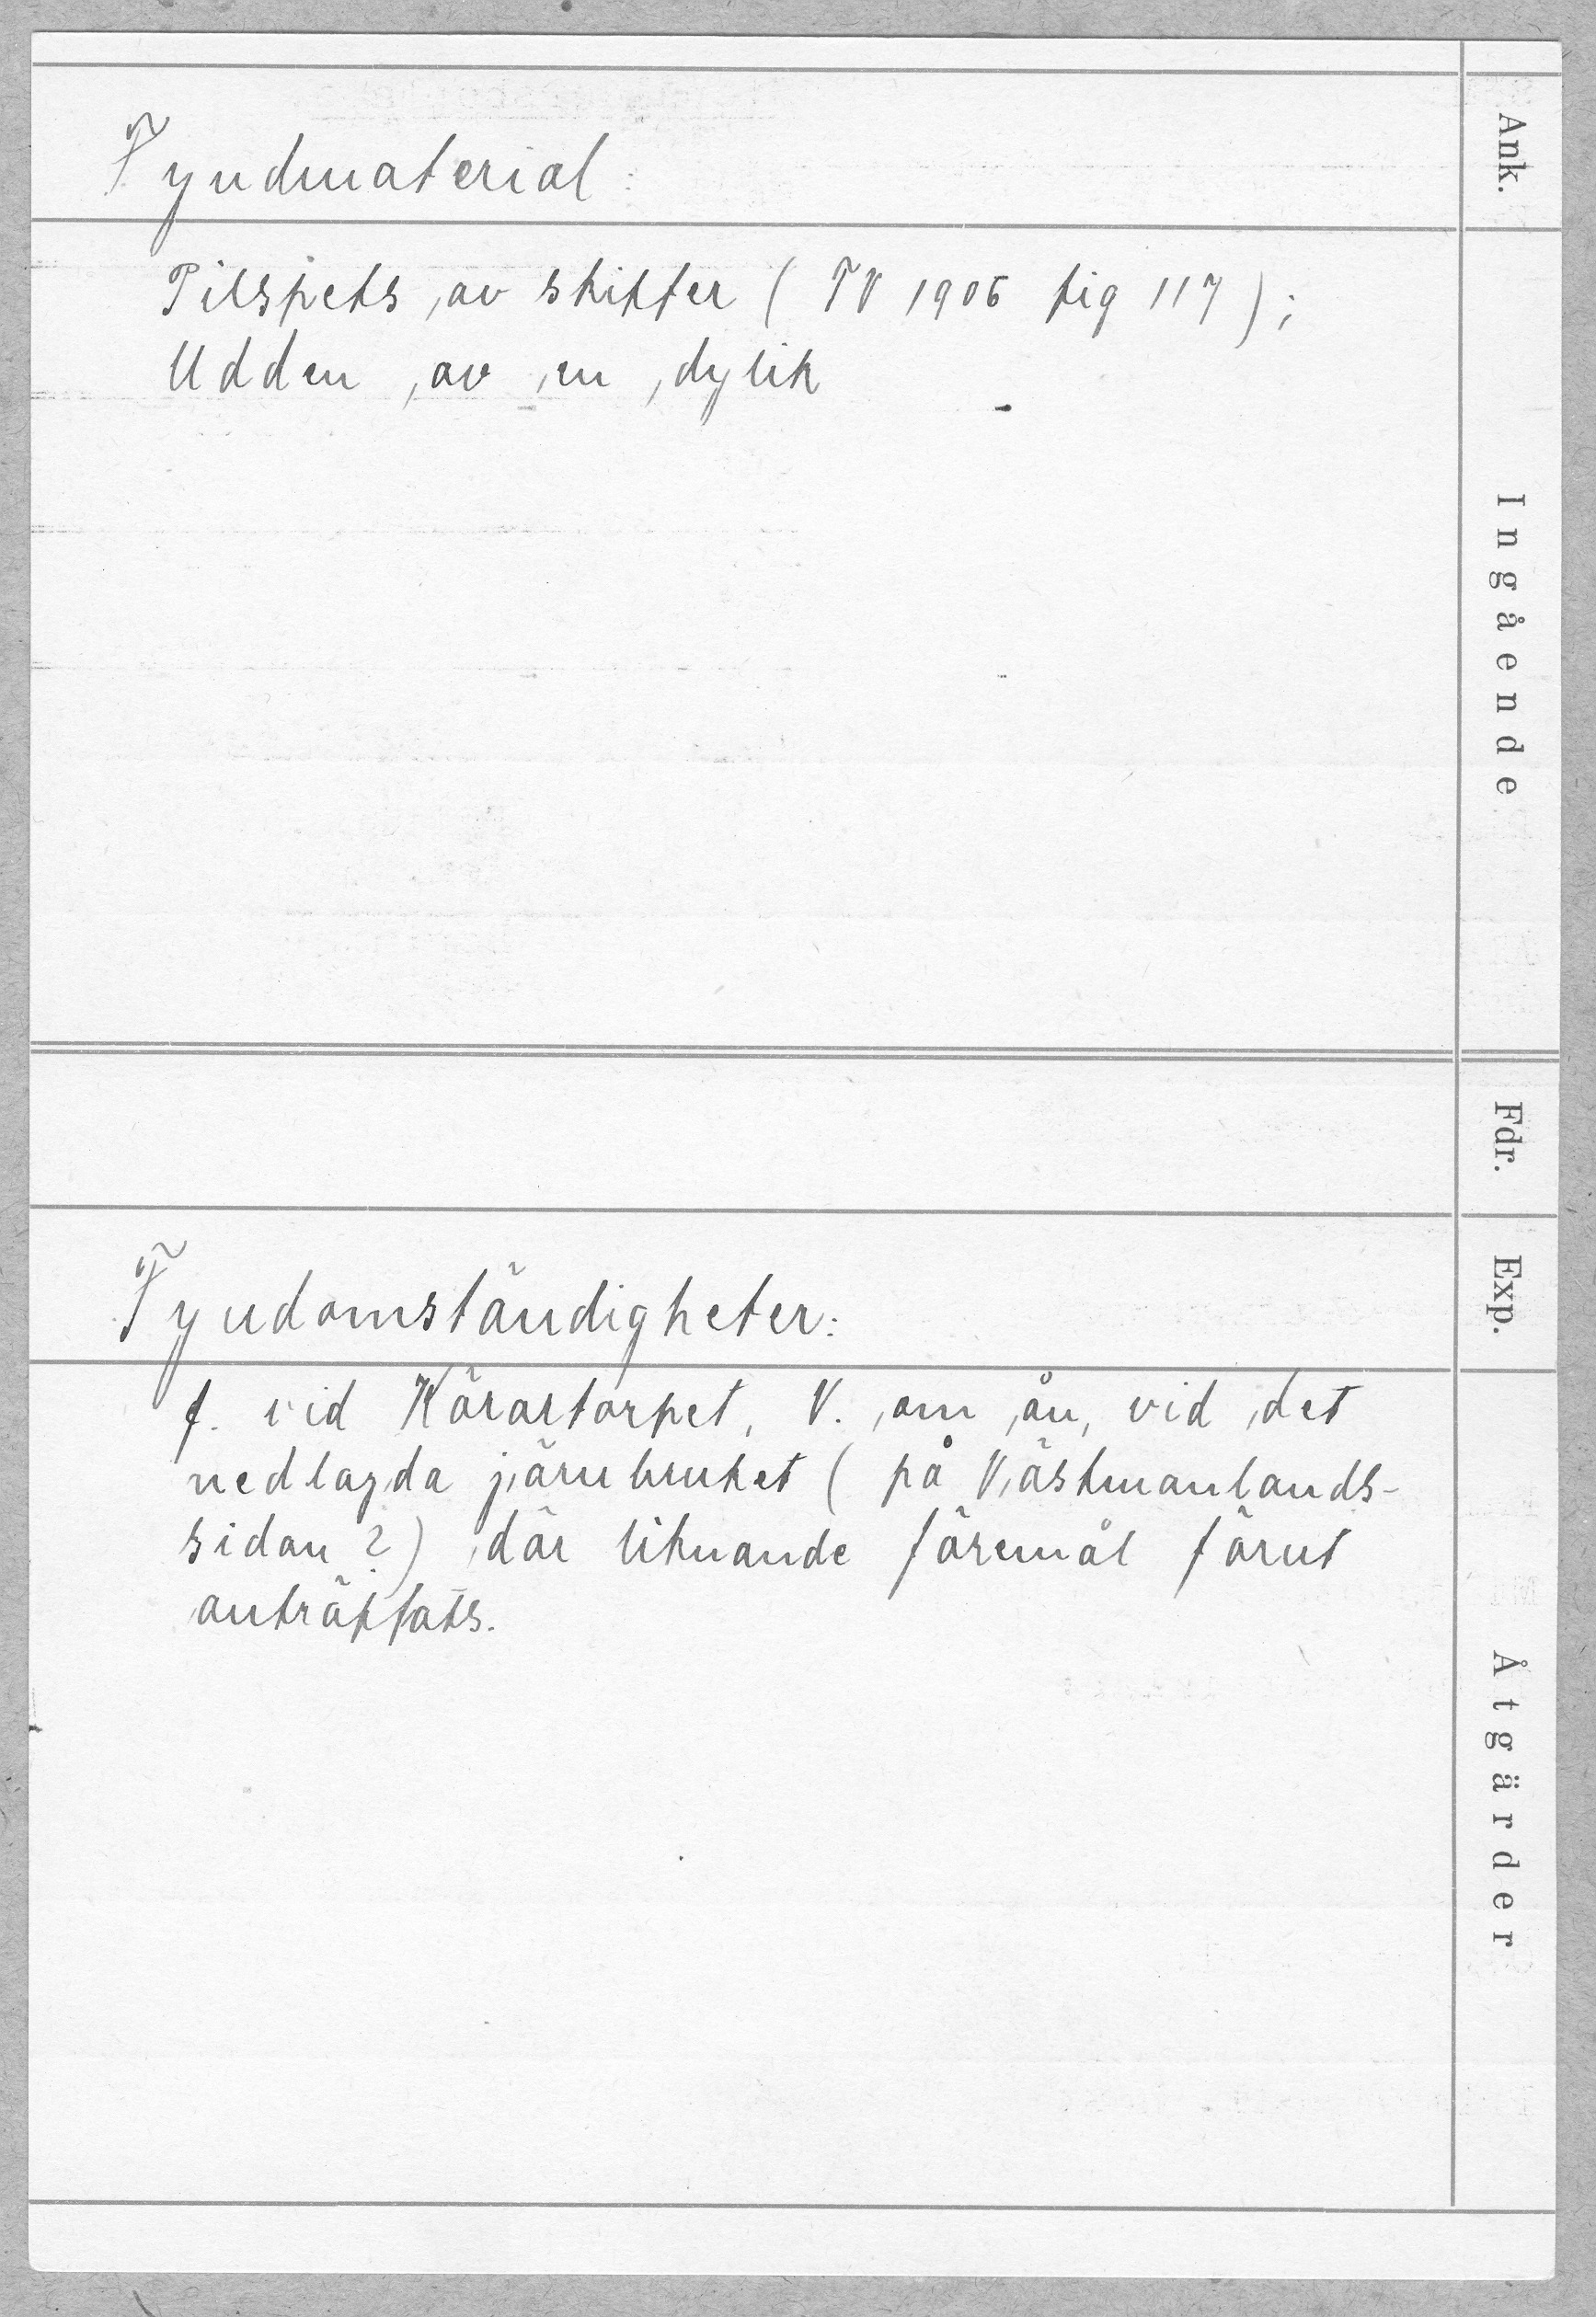 Fyndmaterial:
Pilspets av skiffer ( FV 1906 fig 117 );
Udden av en dylik
Fyndomständigheter:
f. vid Körartorpet, V. om ån, vid det
nedlagda järnbruket ( på Västmanlands-
sidan ? ) där liknande föremål förut
anträffats.
Ank.
Ingående
Fdr.
Exp.
Åtgärder